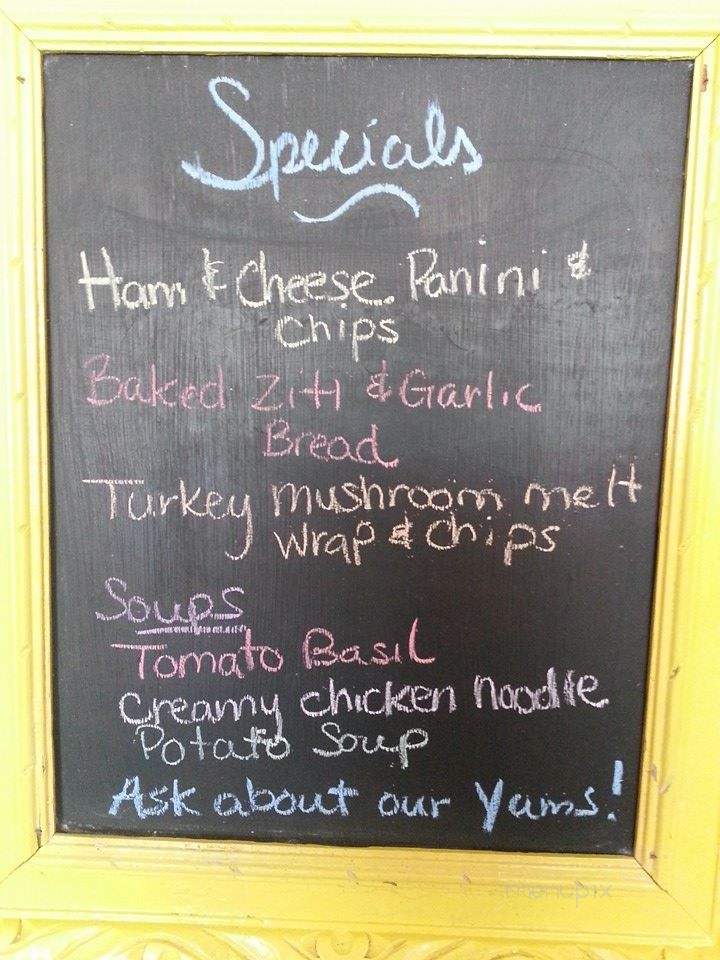 Specials
Ham & Cheese Panini &
Chips
Baked Ziti & Garlic
Bread
Turkey mushroom melt
wrap & chips
Soups
Tomato Basil
Creamy chicken noodle
Potato Soup
Ask about our Yams!
menupix